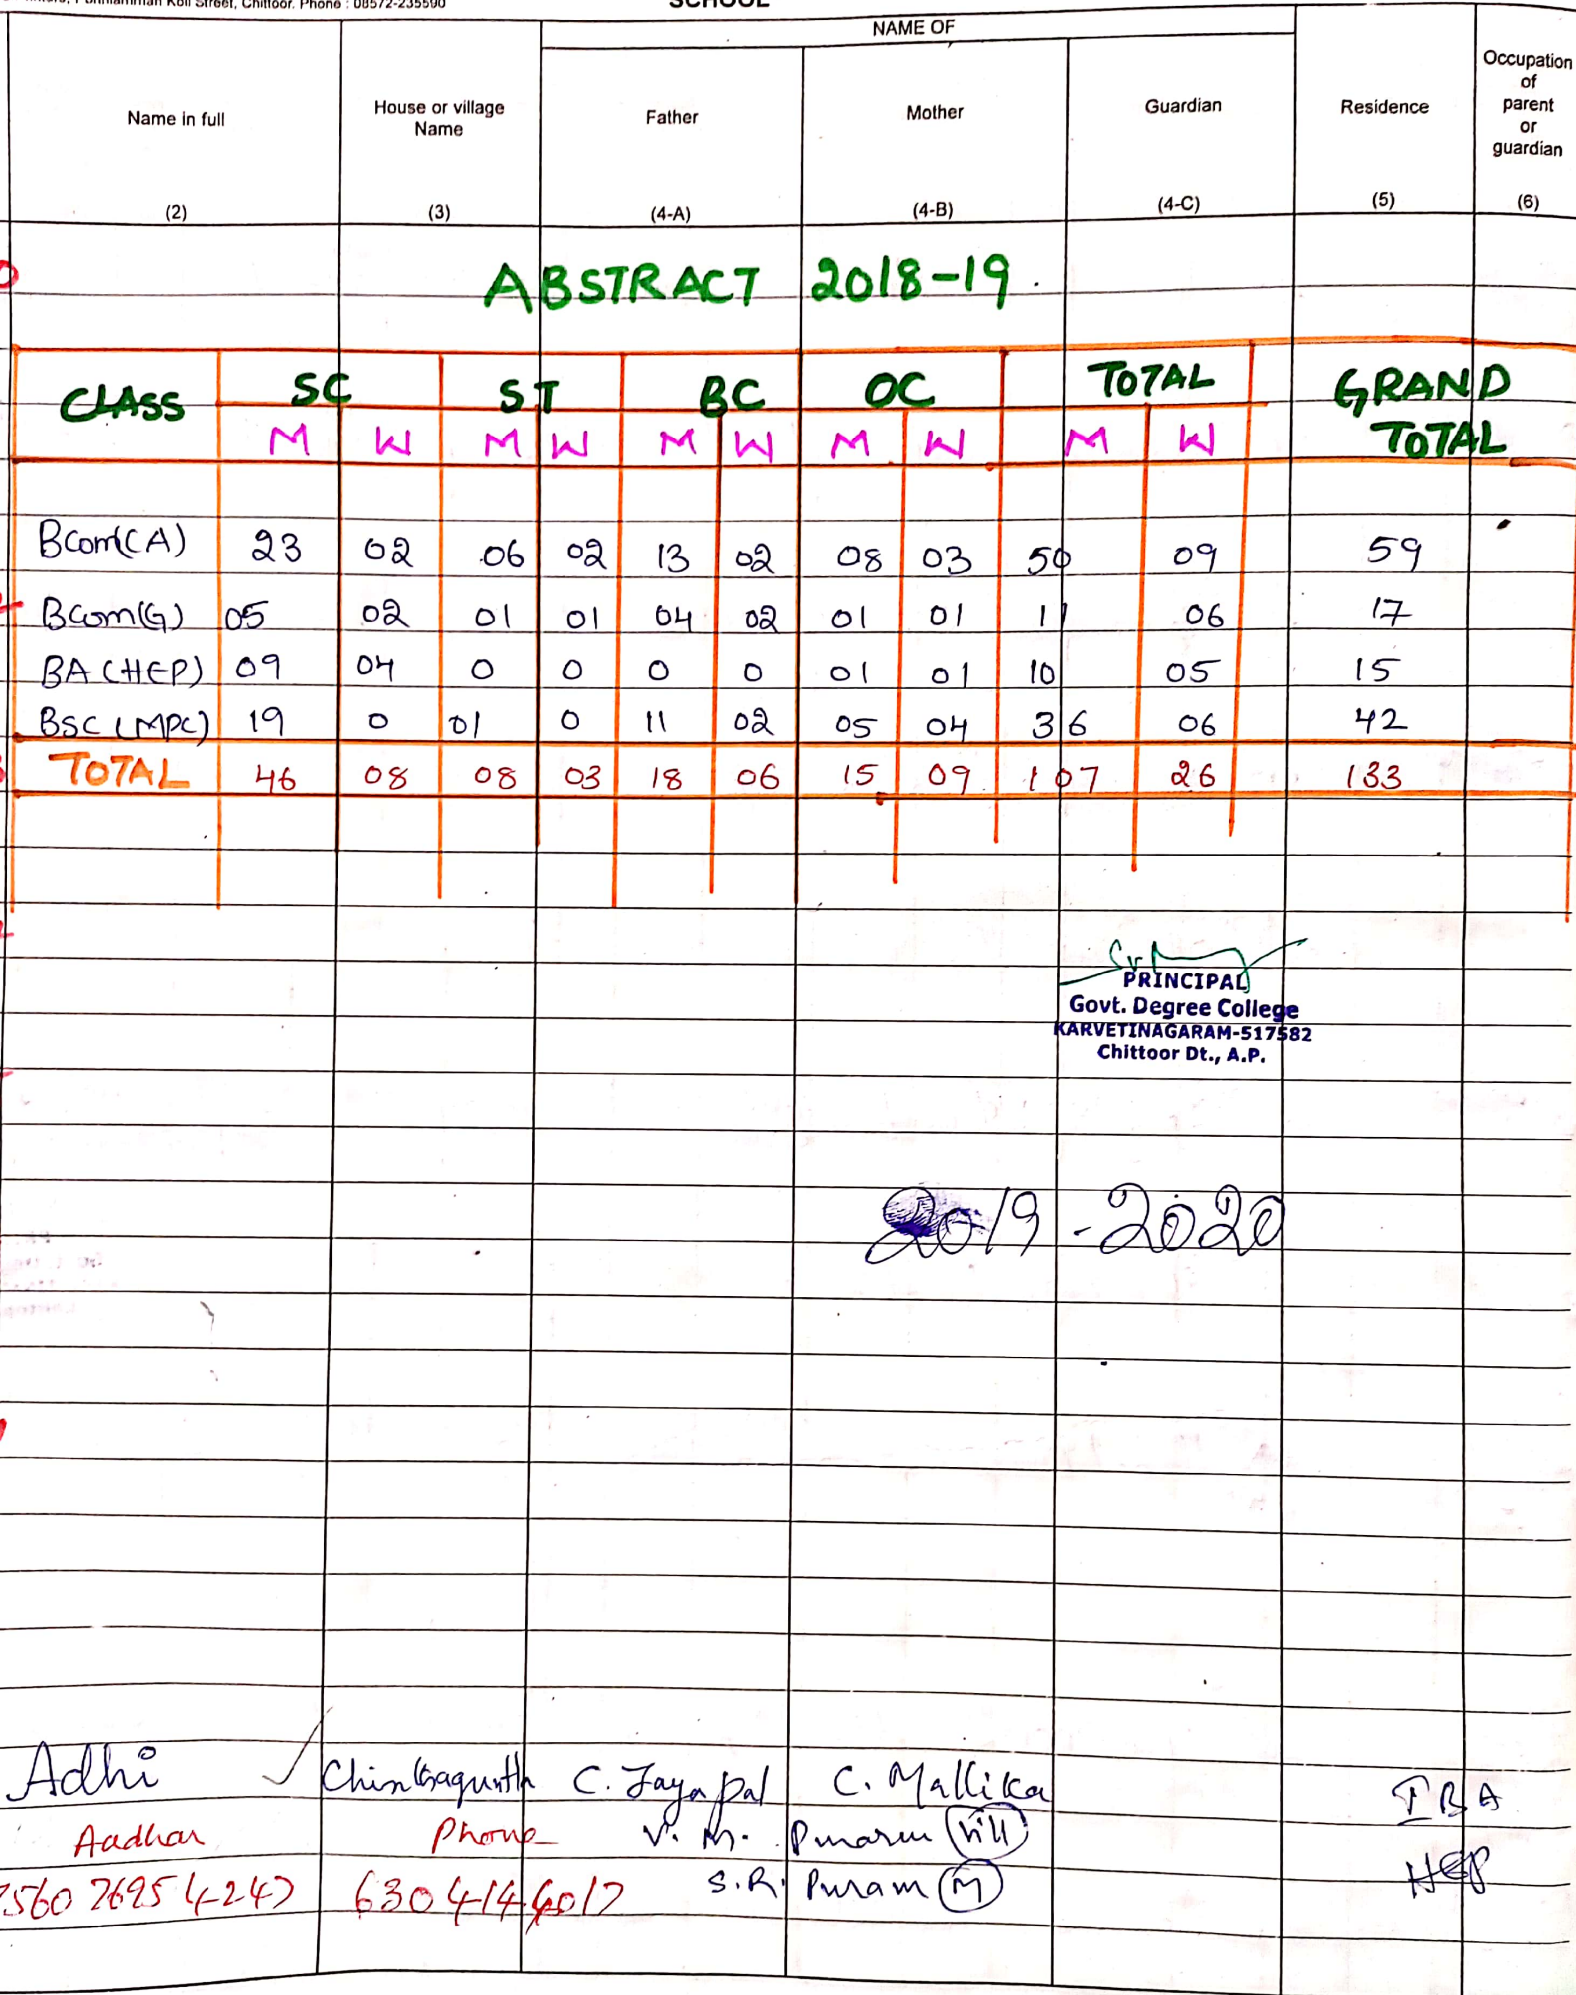 Street, Chittoor. Phone : 08572-235590
SCHOOL
NAME OF
Name in full
House or village
Name
Father
Mother
Guardian
Residence
Occupation
of
parent
or
guardian
(2) (3) (4-A) (4-B) (4-C) (5) (6)
ABSTRACT 2018-19
CLASS SC ST BC OC TOTAL GRAND TOTAL
M W M W M W M W M W
Bcom(CA) 23 02 06 02 13 02 08 03 50 09 59
Bcom(G) 05 02 01 01 04 02 01 01 11 06 17
BA (HEP) 09 04 0 0 0 0 01 01 10 05 15
BSC (MPC) 19 0 01 0 11 02 05 04 36 06 42
TOTAL 46 08 08 03 18 06 15 09 107 26 133
PRINCIPAL
Govt. Degree College
KARVETINAGARAM-517582
Chittoor Dt., A.P.
2019-2020
Adhi C. Jayapal C. Mallika I BA
Aadhar Phone V. M. Puaram (Vill) HEP
5607695 4247 6304144017 S.R. Puram (M)